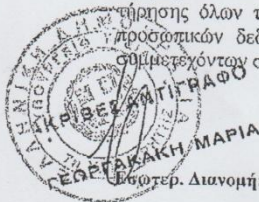 τήρησης όλων τ
προσωπικών δεδ
συμμετεχόντων σ
ΕΛΛΗΝΙΚΗ ΔΗΜ
ΑΚΡΙΒΕΣ ΑΝΤΙΓΡΑΦΟ
ΓΕΩΡΓΑΚΑΚΗ ΜΑΡΙΑ
Εσωτερ. Διανομή